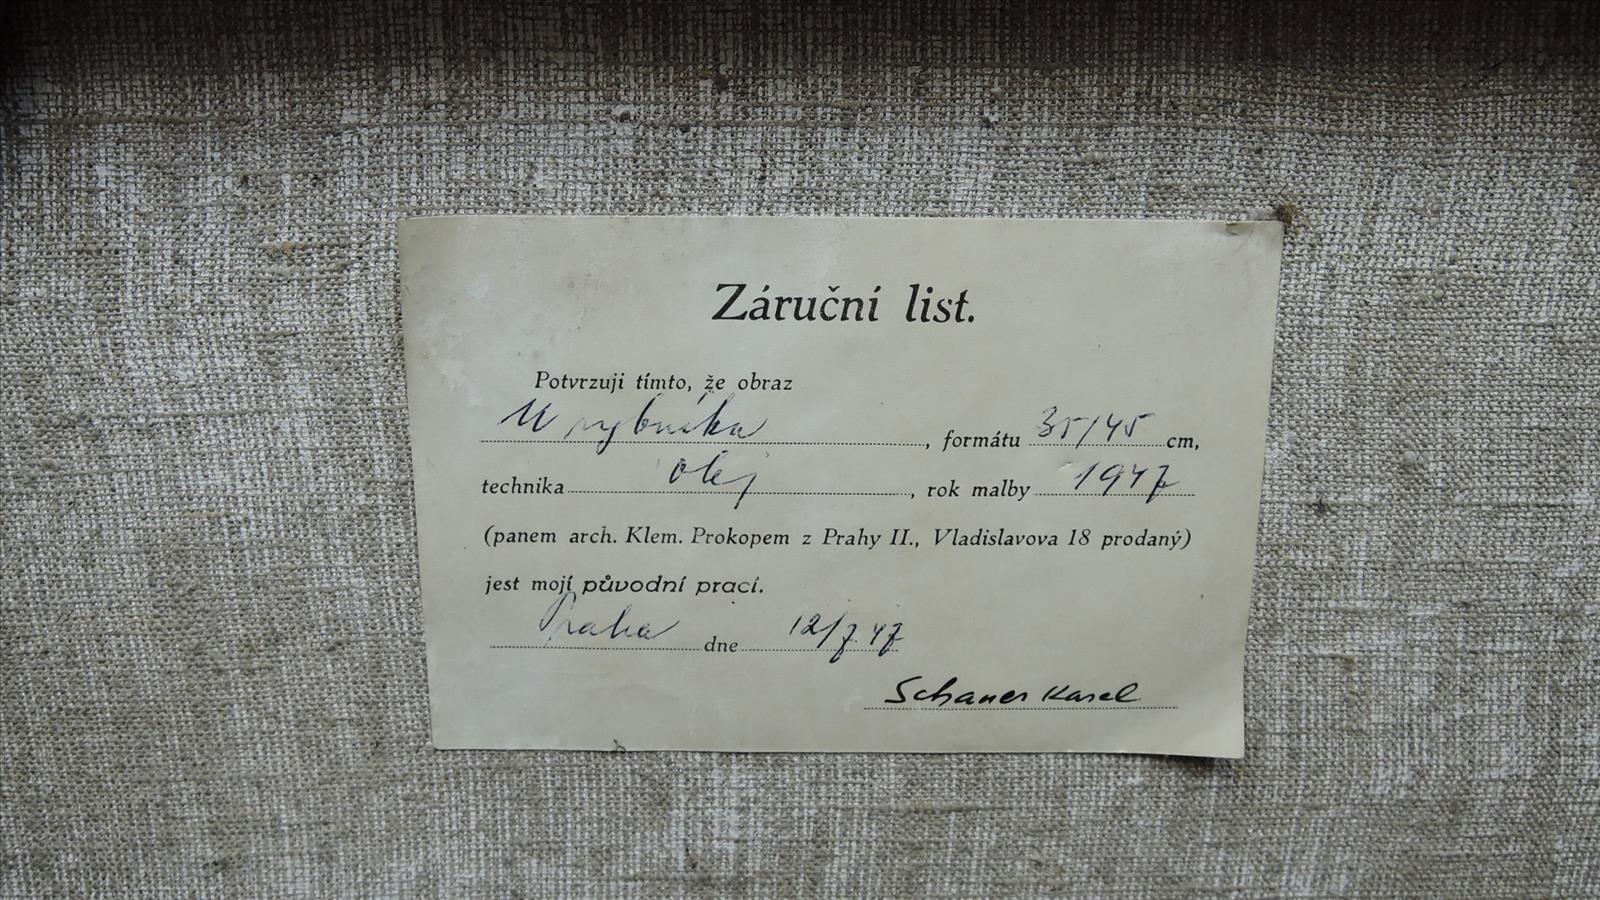 Záruční list.
Potvrzuji tímto, že obraz
U rybníka, formátu 35/45 cm,
technika olej, rok malby 1947
(panem arch. Klem. Prokopem z Prahy II., Vladislavova 18 prodaný)
jest mojí původní prací.
Praha dne 12/7 47
Schauer Karel